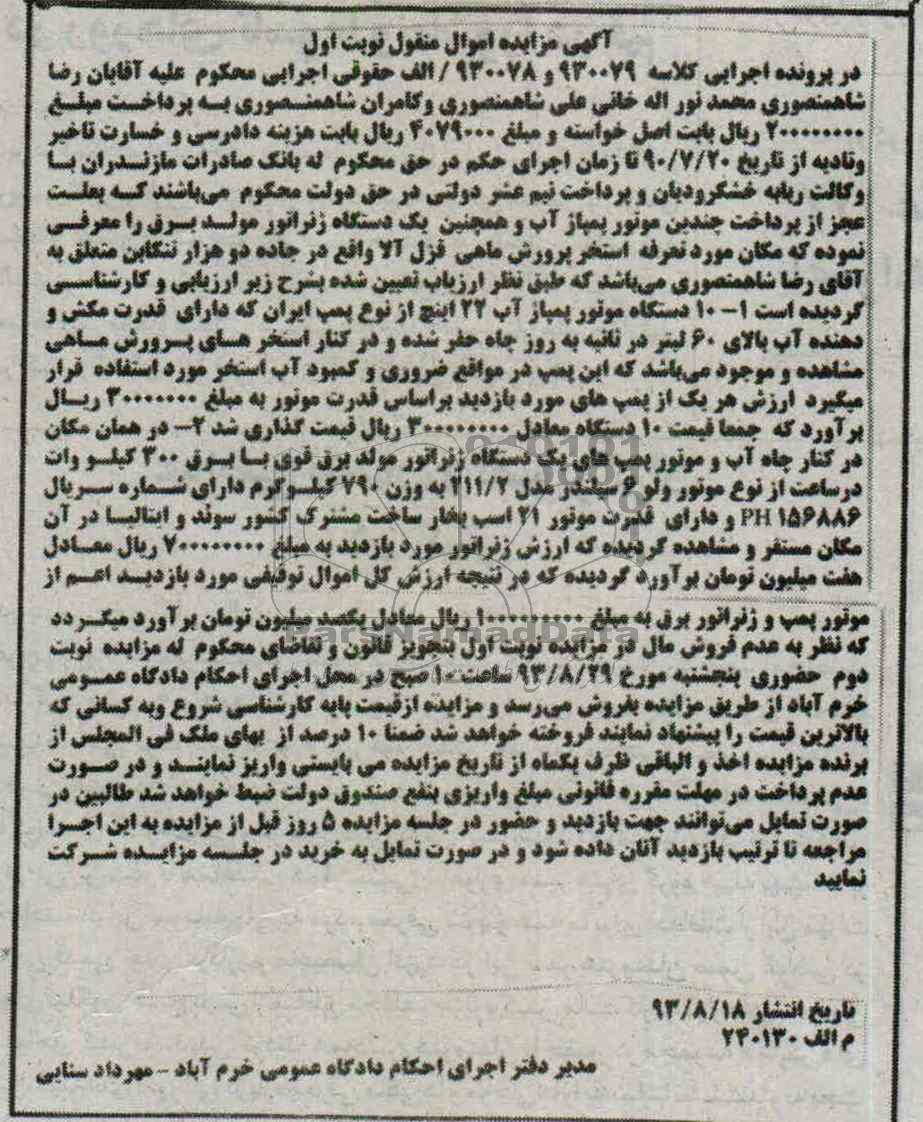 آگهی مزایده اموال منقول نوبت اول
در پرونده اجرایی کلاسه ۹۳۰۰۷۹ و ۹۳۰۰۷۸ / الف حقوقی اجرایی محکوم علیه آقایان رضا
شاهمنصوری محمد نور اله خانی علی شاهمنصوری وکامران شاهمنصوری به پرداخت مبلغ
۲۰۰۰۰۰۰۰۰ ریال بابت اصل خواسته و مبلغ ۴۰۷۹۰۰۰ ریال بابت هزینه دادرسی و خسارت تاخیر
وتادیه از تاریخ ۹۰/۷/۲۰ تا زمان اجرای حکم در حق محکوم له بانک صادرات مازندران با
وکالت ربابه خشکرودیان و پرداخت نیم عشر دولتی در حق دولت محکوم می‌باشند که بعلت
عجز از پرداخت چندین موتور پمپاز آب و همچنین یک دستگاه ژنراتور مولد برق را معرفی
نموده که مکان مورد تعرفه استخر پرورش ماهی قزل آلا واقع در جاده دو هزار تنکابن متعلق به
آقای رضا شاهمنصوری می‌باشد که طبق نظر ارزیاب تعیین شده بشرح زیر ارزیابی و کارشناسی
گردیده است ۱- ۱۰ دستگاه موتور پمپاز آب ۲۲ اینچ از نوع پمپ ایران که دارای قدرت مکش و
دهنده آب بالای ۶۰ لیتر در ثانیه به روز چاه حفر شده و در کنار استخر های پرورش ماهی
مشاهده و موجود می‌باشد که این پمپ در مواقع ضروری و کمبود آب استخر مورد استفاده قرار
میگیرد ارزش هر یک از پمپ های مورد بازدید براساس قدرت موتور به مبلغ ۳۰۰۰۰۰۰۰ ریال
برآورد که جمعا قیمت ۱۰ دستگاه معادل ۳۰۰۰۰۰۰۰۰ ریال قیمت گذاری شد ۲- در همان مکان
در کنار چاه آب و موتور پمپ های یک دستگاه ژنراتور مولد برق قوی با برق ۳۰۰ کیلو وات
درساعت از نوع موتور ولو ۶ سیلندر مدل ۲۱۱/۲ به وزن ۷۹۰ کیلوگرم دارای شماره سریال
PH ۱۵۶۸۸۶ و دارای قدرت موتور ۲۱ اسب بخار ساخت مشترک کشور سوئد و ایتالیا در آن
مکان مستقر و مشاهده گردیده که ارزش ژنراتور مورد بازدید به مبلغ ۷۰۰۰۰۰۰۰۰ ریال معادل
هفت میلیون تومان برآورد گردیده که در نتیجه ارزش کل اموال توقیفی مورد بازدید اعم از
موتور پمپ و ژنراتور برق به مبلغ ۱۰۰۰۰۰۰۰۰۰ ریال معادل یکصد میلیون تومان برآورد میگردد
که نظر به عدم فروش مال در مزایده نوبت اول بتجویز قانون و تقاضای محکوم له مزایده نوبت
دوم حضوری پنجشنبه مورخ ۹۳/۸/۲۹ ساعت ۱۰ صبح در محل اجرای احکام دادگاه عمومی
خرم آباد از طریق مزایده بفروش می‌رسد و مزایده ازقیمت پایه کارشناسی شروع وبه کسانی که
بالاترین قیمت را پیشنهاد نمایند فروخته خواهد شد ضمنا ۱۰ درصد از بهای ملک فی المجلس از
برنده مزایده اخذ و الباقی ظرف یکماه از تاریخ مزایده می بایستی واریز نمایند و در صورت
عدم پرداخت در مهلت مقرره قانونی مبلغ واریزی بنفع صندوق دولت ضبط خواهد شد طالبین در
صورت تمایل می‌توانند جهت بازدید و حضور در جلسه مزایده ۵ روز قبل از مزایده به این اجرا
مراجعه تا ترتیب بازدید آنان داده شود و در صورت تمایل به خرید در جلسه مزایده شرکت
نمایید
تاریخ انتشار ۹۳/۸/۱۸
م الف ۲۴۰۱۳۰
مدیر دفتر اجرای احکام دادگاه عمومی خرم آباد - مهرداد سنایی
ParsNamadData